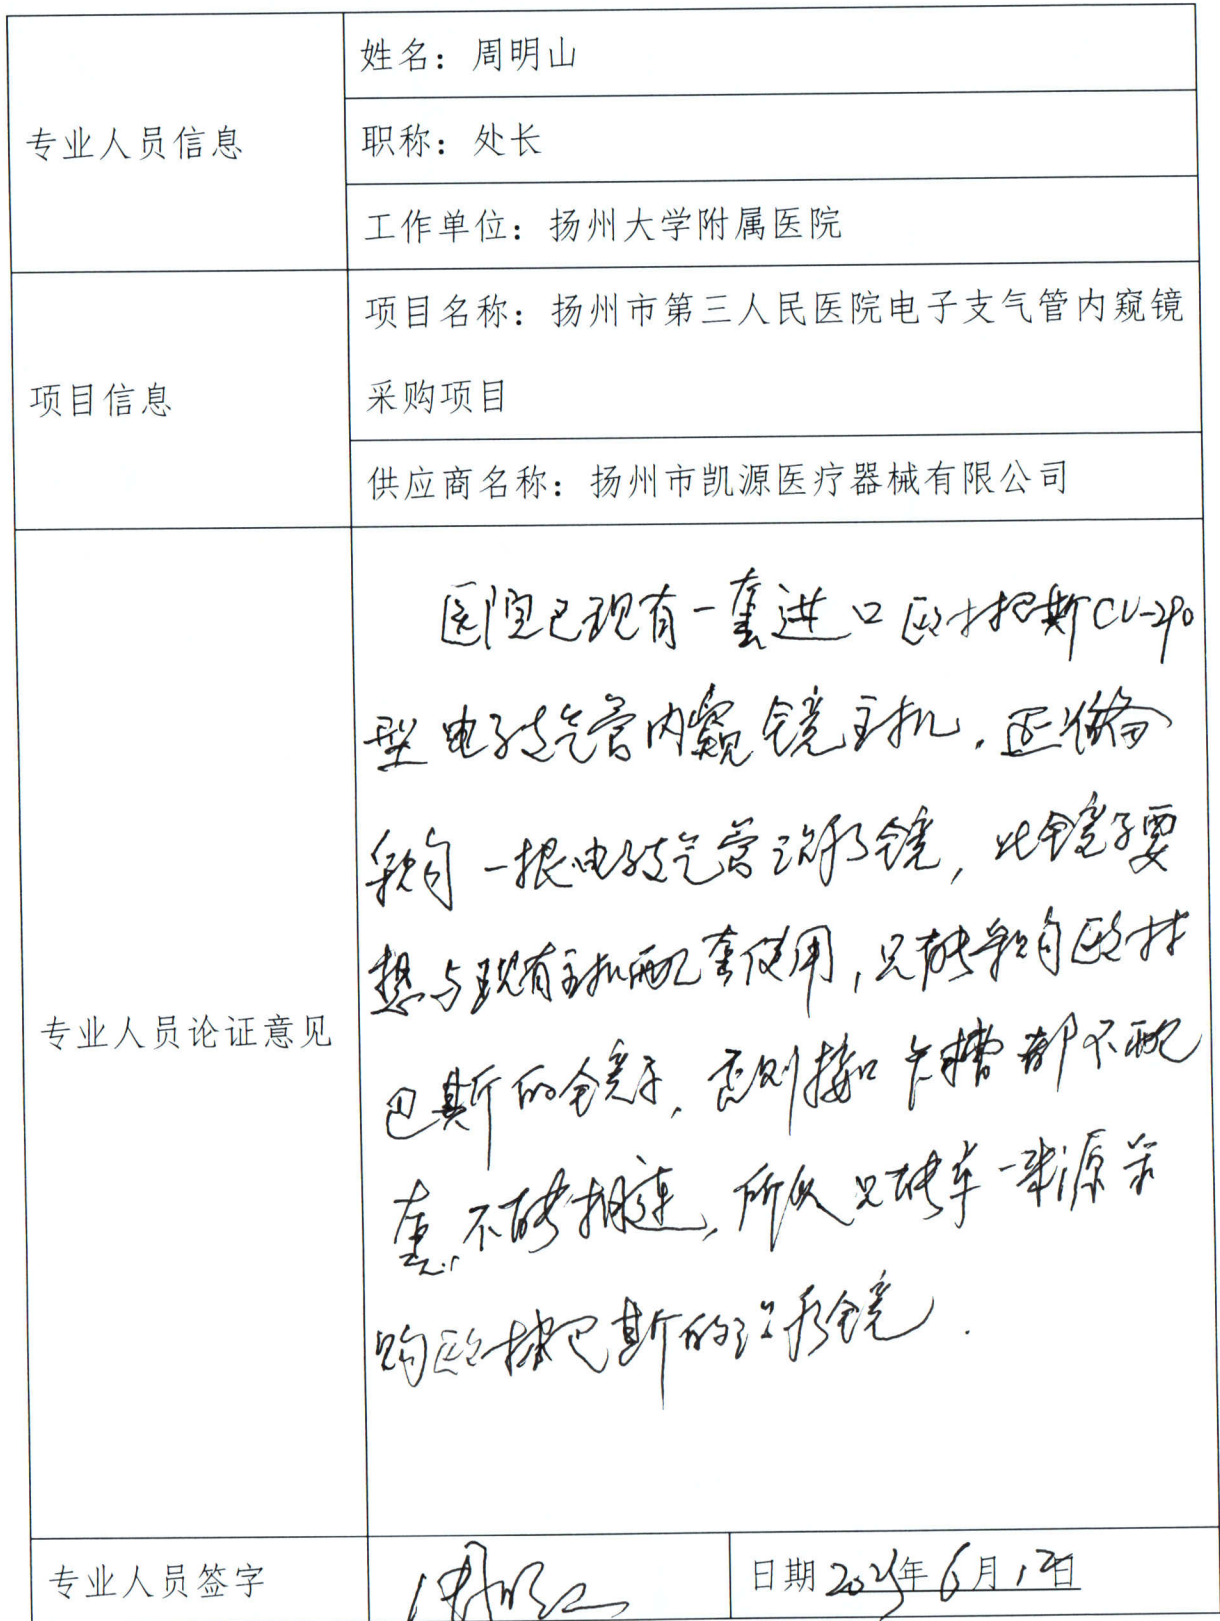 专业人员信息
姓名：周明山
职称：处长
工作单位：扬州大学附属医院
项目信息
项目名称：扬州市第三人民医院电子支气管内窥镜
采购项目
供应商名称：扬州市凯源医疗器械有限公司
专业人员论证意见
医院已现有一套进口欧林巴斯CV-290
型电子支气管内窥镜主机，还准备
采购一根电子支气管治疗镜，此镜子要
想与现有主机配套使用，只能采购欧林
巴斯的镜子，否则接口卡槽都不配
套，不能相连，所以只能单一来源采
购欧林巴斯的治疗镜．
专业人员签字
周明山
日期 年6月12日